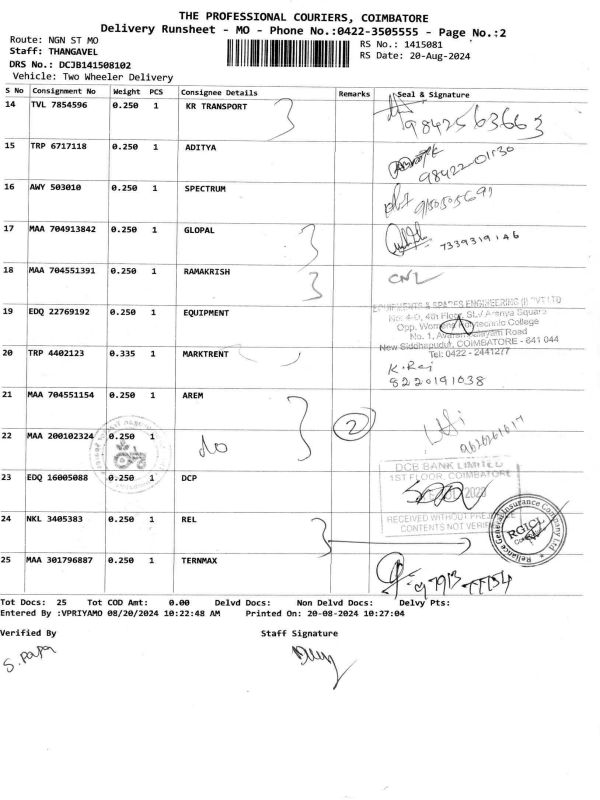 THE PROFESSIONAL COURIERS, COIMBATORE
Delivery Runsheet - MO - Phone No.:0422-3505555 - Page No.:2
Route: NGN ST MO
RS No.: 1415081
Staff: THANGAVEL
RS Date: 20-Aug-2024
DRS No.: DCJB141508102
Vehicle: Two Wheeler Delivery
S No Consignment No Weight PCS Consignee Details Remarks Seal & Signature
14 TVL 7854596 0.250 1 KR TRANSPORT
9842563663
15 TRP 6717118 0.250 1 ADITYA
98422 01130
16 AWY 503010 0.250 1 SPECTRUM
17 MAA 704913842 0.250 1 GLOPAL
7339319146
18 MAA 704551391 0.250 1 RAMAKRISH
CNL
19 EDQ 22769192 0.250 1 EQUIPMENT
EQUIPMENTS & SPARES ENGINEERING (I) PVT LTD
No: 4-D, 4th Floor,
Opp. Womens Polytechnic College
No. 1,
New Siddhapudur, COIMBATORE - 641 044
Tel: 0422 - 2441277
20 TRP 4402123 0.335 1 MARKTRENT
K. Raj
8220191038
21 MAA 704551154 0.250 1 AREM
2
22 MAA 200102324 0.250 1 do
9626261617
23 EDQ 16005088 0.250 1 DCP
DCB BANK LIMITED
1ST FLOOR, COIMBATORE
RECEIVED WITHOUT
CONTENTS NOT
24 NKL 3405383 0.250 1 REL
Reliance General Insurance Company Ltd
RGICL
25 MAA 301796887 0.250 1 TERNMAX
Tot Docs: 25 Tot COD Amt: 0.00 Delvd Docs: Non Delvd Docs: Delvy Pts:
Entered By :VPRIYAMO 08/20/2024 10:22:48 AM Printed On: 20-08-2024 10:27:04
Verified By Staff Signature
S. Papa